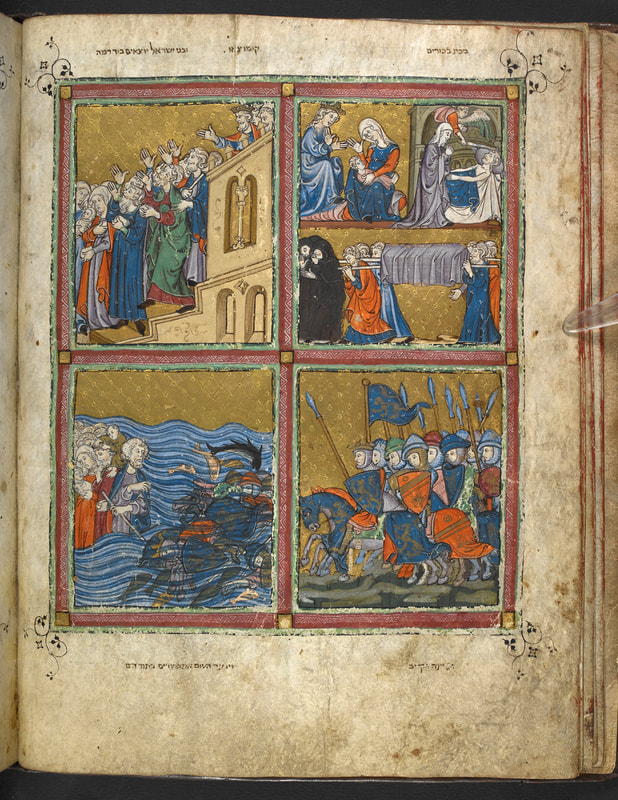 מכת בכורים
קומו צאו ובני ישראל יוצאים ביד רמה
הקריב
וינער השם את מצריים בתוך הים